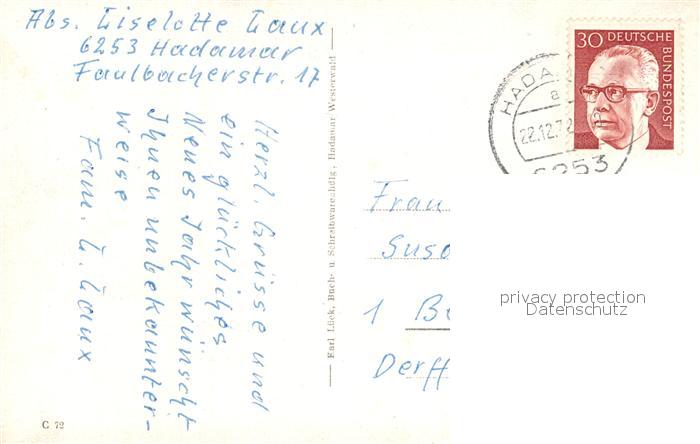 Abs. Liselotte Laux
6253 Hadamar
Faulbacherstr. 17
Herzl. Grüsse und
ein glückliches
Neues Jahr wünscht
Ihnen unbekannter-
weise
Fam. L. Laux
Karl Lück, Buch- u. Schreibwarenhdlg., Hadamar Westerwald
C 72
30 DEUTSCHE
BUNDESPOST
HADA
a
22.12.72
6253
Frau
Suso
1 B
Derff
privacy protection
Datenschutz